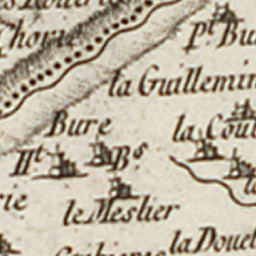 Choriet
Pt. Bu
la Guillemin
Bure
la Cout
Ht. Bs
rie
le Meslier
la
la Douet